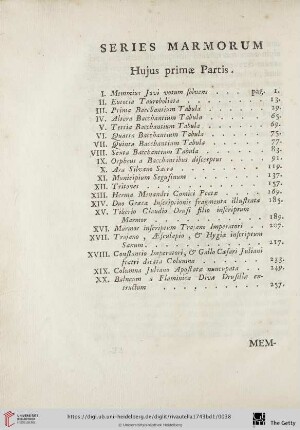 SERIES MARMORUM
Hujus primæ Partis.
I. Memmius Jovi votum solvens . . . pag. 1.
II. Evocia Taurobolista . . . . . . 13.
III. Prima Bacchantium Tabula . . . . . 29.
IV. Altera Bacchantium Tabula . . . . . 65.
V. Tertia Bacchantium Tabula . . . . . 69.
VI. Quarta Bacchantium Tabula . . . . . 75.
VII. Quinta Bacchantium Tabula . . . . . 77.
VIII. Sexta Bacchantium Tabula . . . . . 83.
IX. Orpheus a Bacchantibus discerptus . . . 91.
X. Ara Silvano Sacra . . . . . . . 119.
XI. Municipium Segusinum . . . . . . 137.
XII. Tritones . . . . . . . . . 157.
XIII. Herma Menandri Comici Poetæ . . . . 169.
XIV. Duo Græca Inscriptionis fragmenta illustrata 185.
XV. Tiberio Claudio Drusi filio inscriptum
Marmor . . . . . . . . . . 189.
XVI. Marmor inscriptum Trajano Imperatori . . 207.
XVII. Trajano, Æsculapio, & Hygiæ inscriptum
Saxum . . . . . . . . . . 217.
XVIII. Constantio Imperatori, & Gallo Cæsari Juliani
fratri dicata Columna . . . . . . 233.
XIX. Columna Juliano Apostatæ nuncupata . . . 249.
XX. Balneum a Flaminica Divæ Drusillæ ex-
tructum . . . . . . . . . 257.
MEM-
https://digi.ub.uni-heidelberg.de/diglit/rivautella1743bd1/0038
© Universitätsbibliothek Heidelberg
UNIVERSITÄTS-
BIBLIOTHEK
HEIDELBERG
The Getty